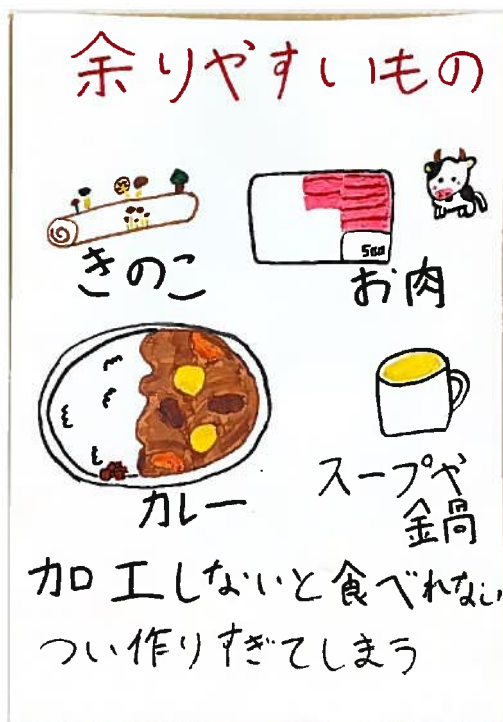 余りやすいもの
きのこ
500
お肉
カレー
スープや
鍋
加工しないと食べれない
つい作りすぎてしまう